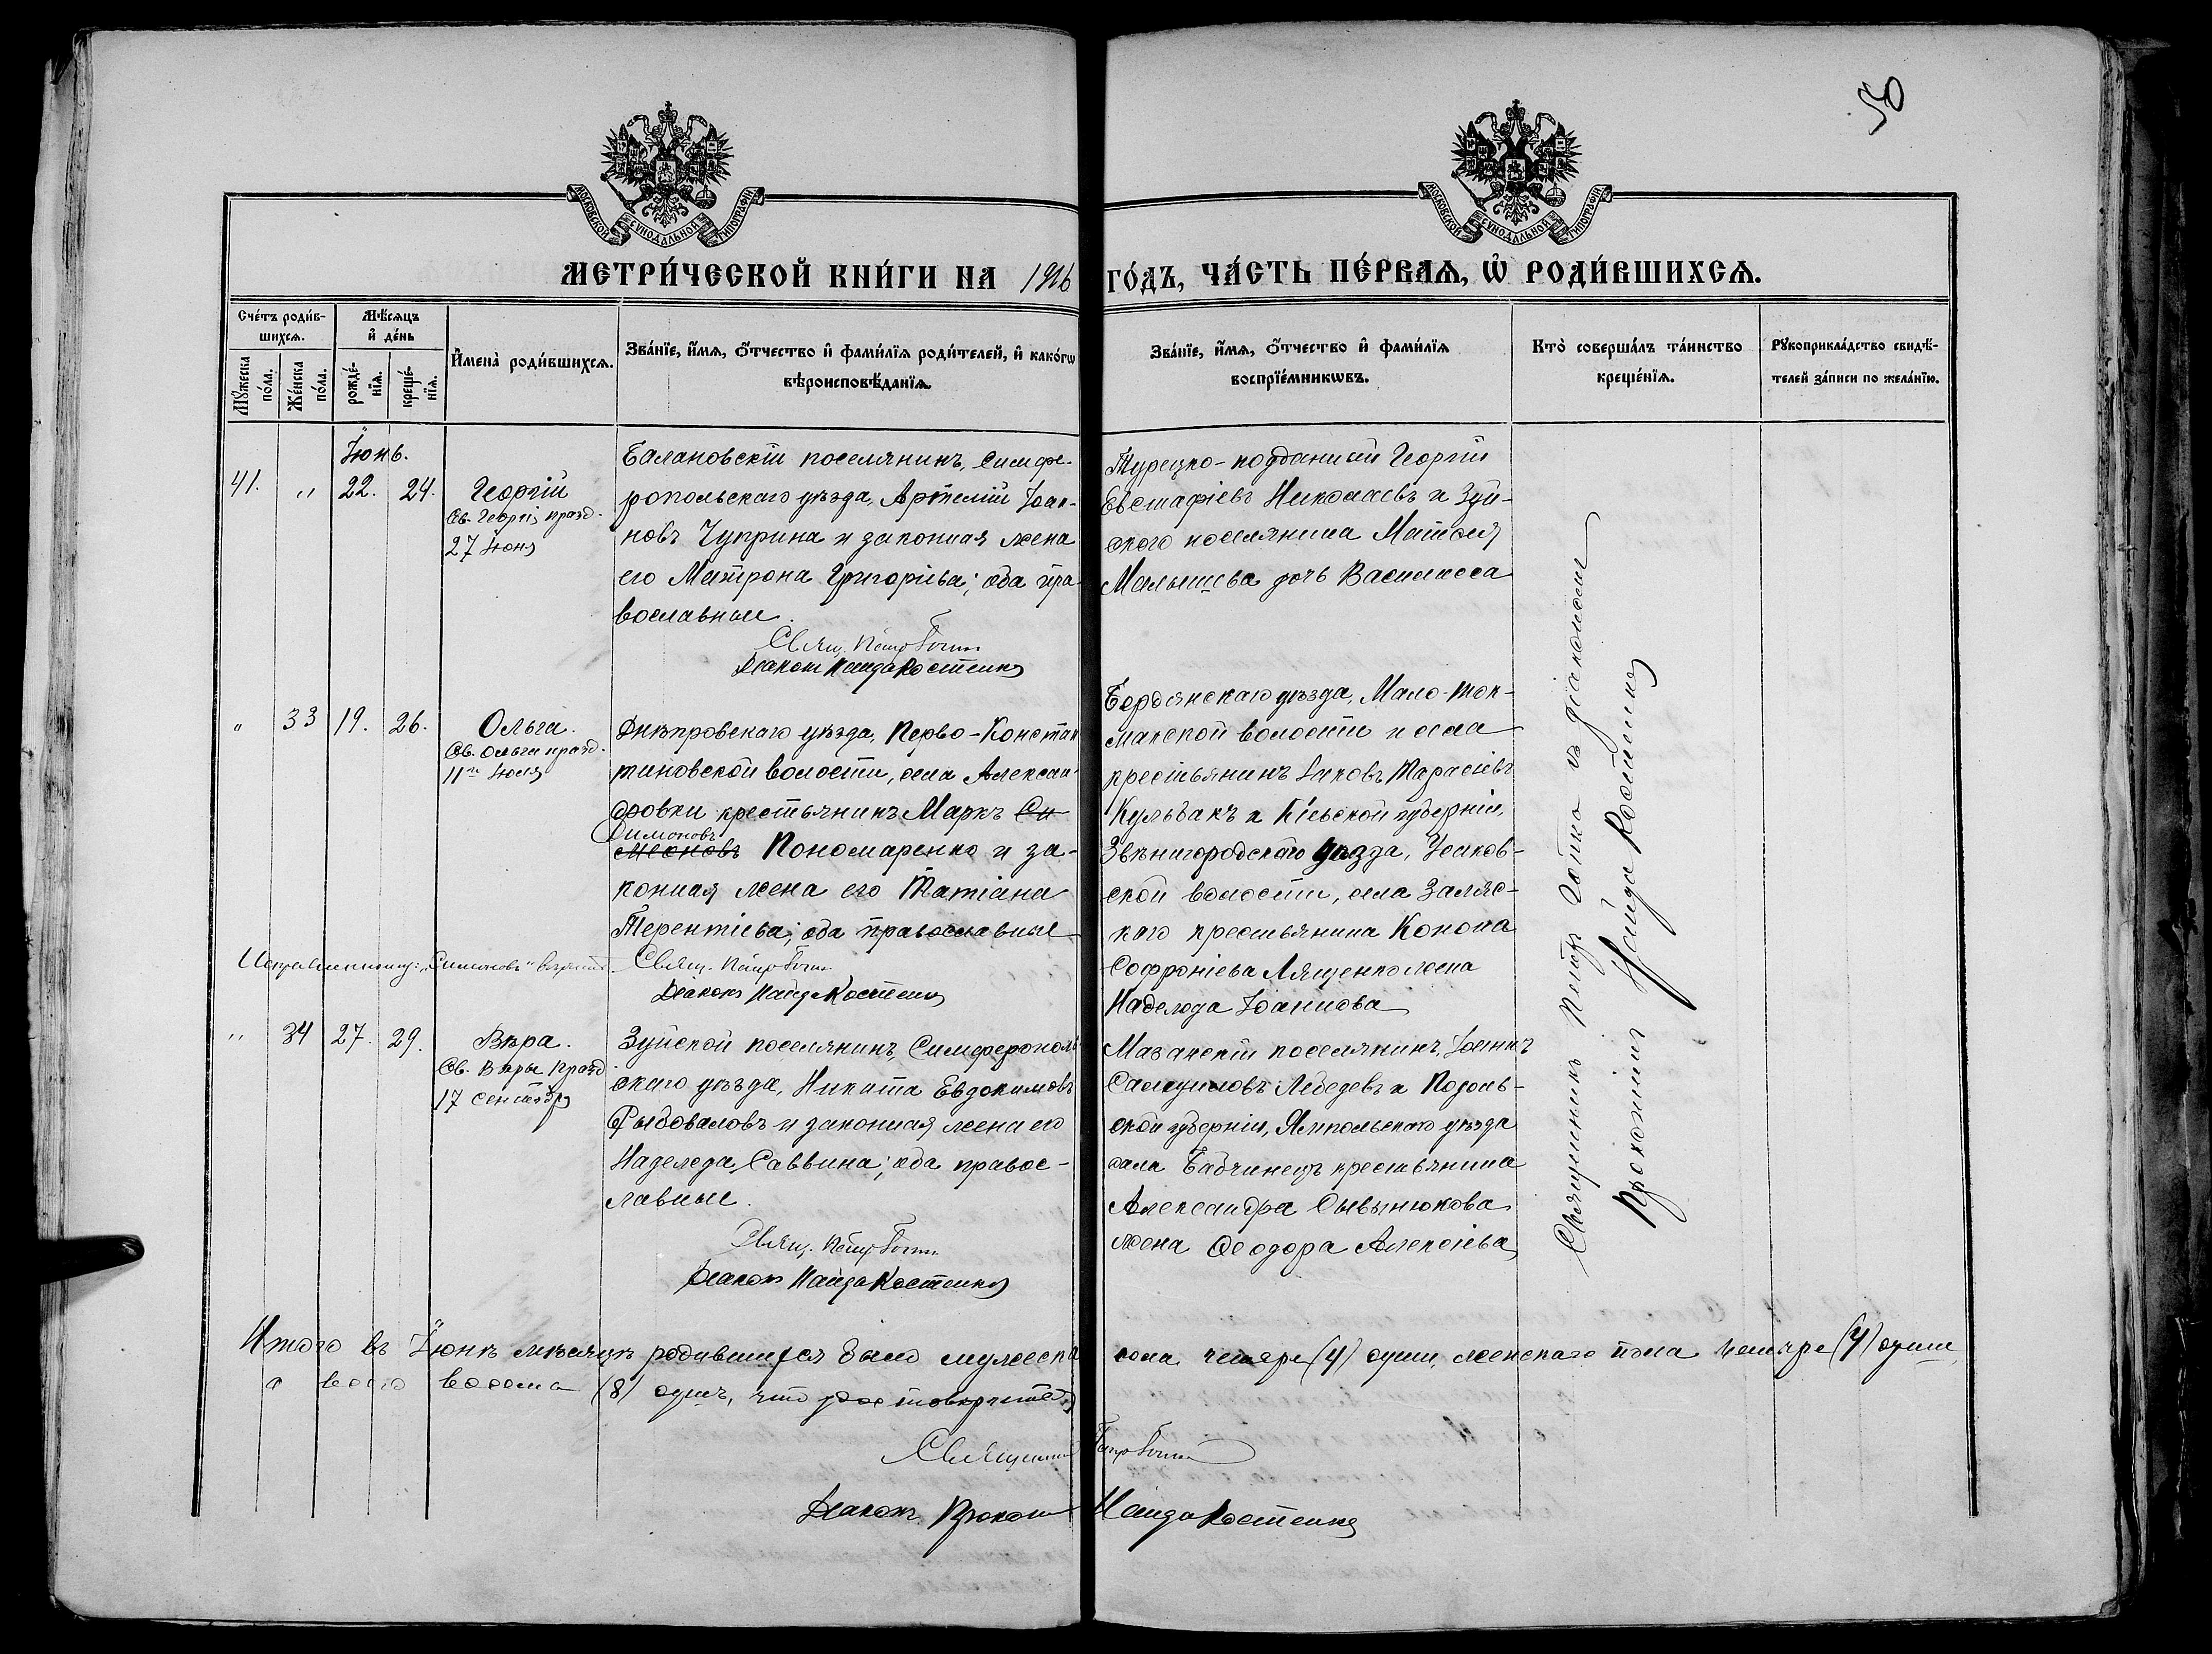 50
МОСКОВСКОЙ СѴНОДАЛЬНОЙ ТИПОГРАФІИ
МОСКОВСКОЙ СѴНОДАЛЬНОЙ ТИПОГРАФІИ
МЕТРИ́ЧЕСКОЙ КНИ́ГИ НА 1916 ГО́ДЪ, ЧА́СТЬ ПЕ́РВАѦ, Ѡ҆ РОДИ́ВШИХСѦ.
Сче́тъ роди́в-
шихсѧ.
Мꙋ́жеска
по́ла.
Же́нска
по́ла.
Мѣ́сѧцъ
и҆ де́нь
рожде́-
нїѧ.
креще́-
нїѧ.
И҆мена̀ роди́вшихсѧ.
Зва́нїе, и҆́мѧ, ѻ҆́тчество и҆ фами́лїѧ роди́телей, и҆ како́гѡ
вѣроисповѣ́данїѧ.
Зва́нїе, и҆́мѧ, ѻ҆́тчество и҆ фами́лїѧ
воспрїе́мникѡвъ.
Кто̀ соверша́лъ та́инство
креще́нїѧ.
Рꙋкоприкла́дство свидѣ́-
телей за́писи по жела́нїю.
Іюнь.
41. " 22. 24. Георгій
Св. Георгія празд.
27 Іюня
Балановскій поселянинъ, Симфе-
ропольскаго уѣзда, Артемій Іоан-
новъ Чуприна и законная жена
его Матрона Григоріева; оба пра-
вославные.
Свящ. Петр Готко
Діаконъ Найда Костенко
Турецко-подданный Георгій
Евстафіевъ Николаевъ и Зуй-
ского поселянина Матвея
Малышева дочь Василисса
" 33 19. 26. Ольга.
Св. Ольги празд.
11го Іюля
Днѣпровскаго уѣзда, Перво-Констан
тиновской волости, села Алексан-
дровки крестьянинъ Маркъ Си
Симоновъ
меоновъ Пономаренко и за-
конная жена его Татіана
Терентіева; оба православные
Исправленному: "Симоновъ" вѣрить.
Свящ. Петр Готко
Діаконъ Найда Костенко
Бердянскаго уѣзда, Мало-Ток-
макской волости и села
крестьянинъ Іаковъ Тарасіевъ
Кульбакъ и Кіевской губерніи,
Звѣнигородскаго уѣзда,
ской волости, села
каго крестьянина Конона
Софроніева Лященко жена
Надежда Іоаннова
" 34 27. 29. Вѣра.
Св. Вѣры празд
17 Сентября
Зуйской поселянинъ, Симферополь-
скаго уѣзда, Никита Евдокимовъ
Рыбоваловъ и законная жена его
Надежда Саввина; оба правос-
лавные.
Свящ. Петр Готко
Діаконъ Найда Костенко
Мазанскій поселянинъ, Іоаннъ
Самуиловъ Лебедевъ и Подоль-
ской губерніи, Ямпольскаго уѣзда
села Бабчинецъ крестьянина
Александра Сывынюкова
жена Ѳеодора Алексіева
Священникъ Петр Готко съ діакономъ
Прокопіемъ Найда Костенко
Итого въ Іюнѣ мѣсяцѣ родившихся было мужеска пола четыре (4) души, женскаго пола четыре (4) души,
а всего восемь (8) душъ, что удостовѣряемъ
Священникъ Петр Готко
Діаконъ Прокопій Найда Костенко